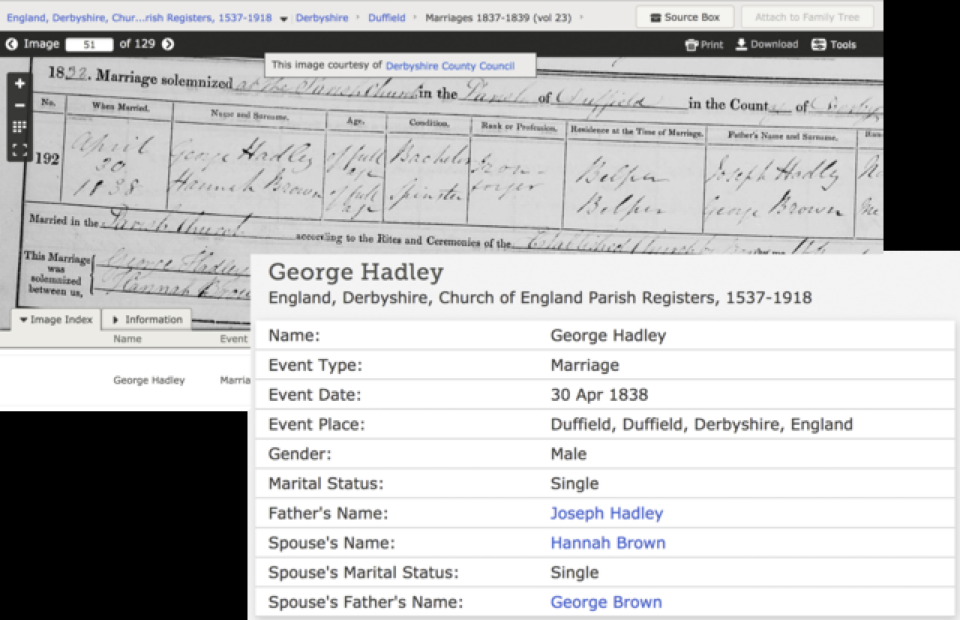 England, Derbyshire, Chur...rish Registers, 1537-1918 ▾ Derbyshire › Duffield › Marriages 1837-1839 (vol 23) ›
Source Box
Attach to Family Tree
Image 51 of 129
Print Download Tools
This image courtesy of Derbyshire County Council
Marriage solemnized at the Parish Church in the Parish of Duffield in the County of
No. When Married. Name and Surname. Age. Condition. Rank or Profession. Residence at the Time of Marriage. Father's Name and Surname.
192
April 30 1838
George Hadley of full age Bachelor Iron-forger Belper Joseph Hadley
Hannah Brown of full age Spinster Belper George Brown
Married in the Parish Church according to the Rites and Ceremonies of the Established Church
This Marriage was solemnized between us,
George Hadley
Hannah
Image Index
Information
Name Event
George Hadley Marria
George Hadley
England, Derbyshire, Church of England Parish Registers, 1537-1918
Name: George Hadley
Event Type: Marriage
Event Date: 30 Apr 1838
Event Place: Duffield, Duffield, Derbyshire, England
Gender: Male
Marital Status: Single
Father's Name: Joseph Hadley
Spouse's Name: Hannah Brown
Spouse's Marital Status: Single
Spouse's Father's Name: George Brown